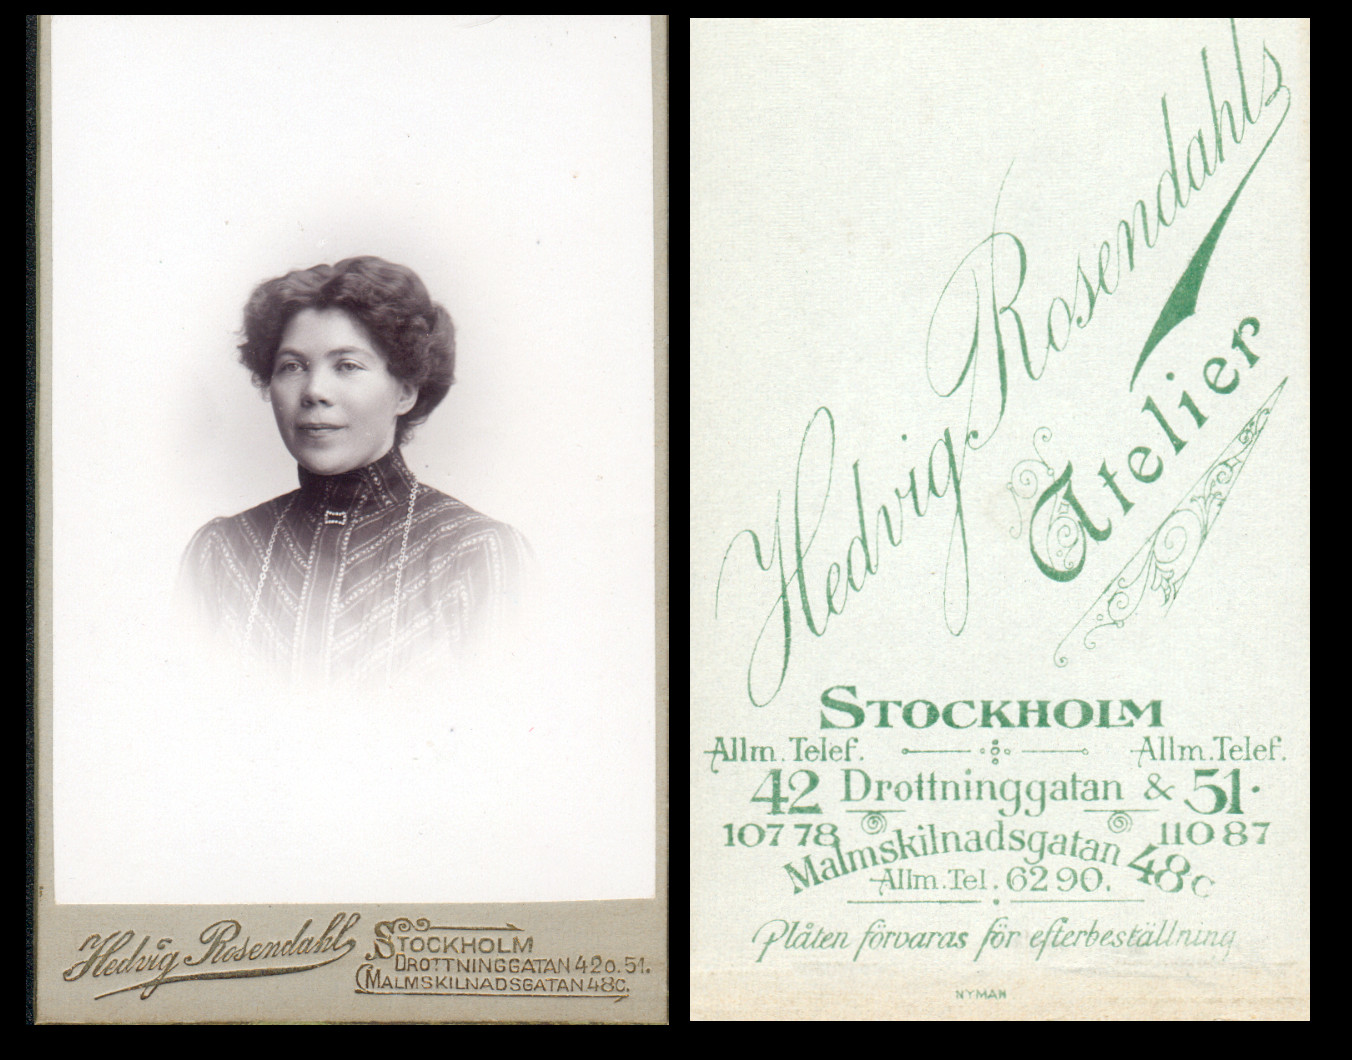 Hedvig Rosendahl
STOCKHOLM
DROTTNINGGATAN 42 o. 51.
MALMSKILNADSGATAN 48c.
Hedvig Rosendahls
Atelier
STOCKHOLM
Allm. Telef. Allm. Telef.
42 Drottninggatan & 51.
107 78 110 87
Malmskilnadsgatan 48c
Allm. Tel. 62 90.
Plåten förvaras för efterbeställning
NYMAN